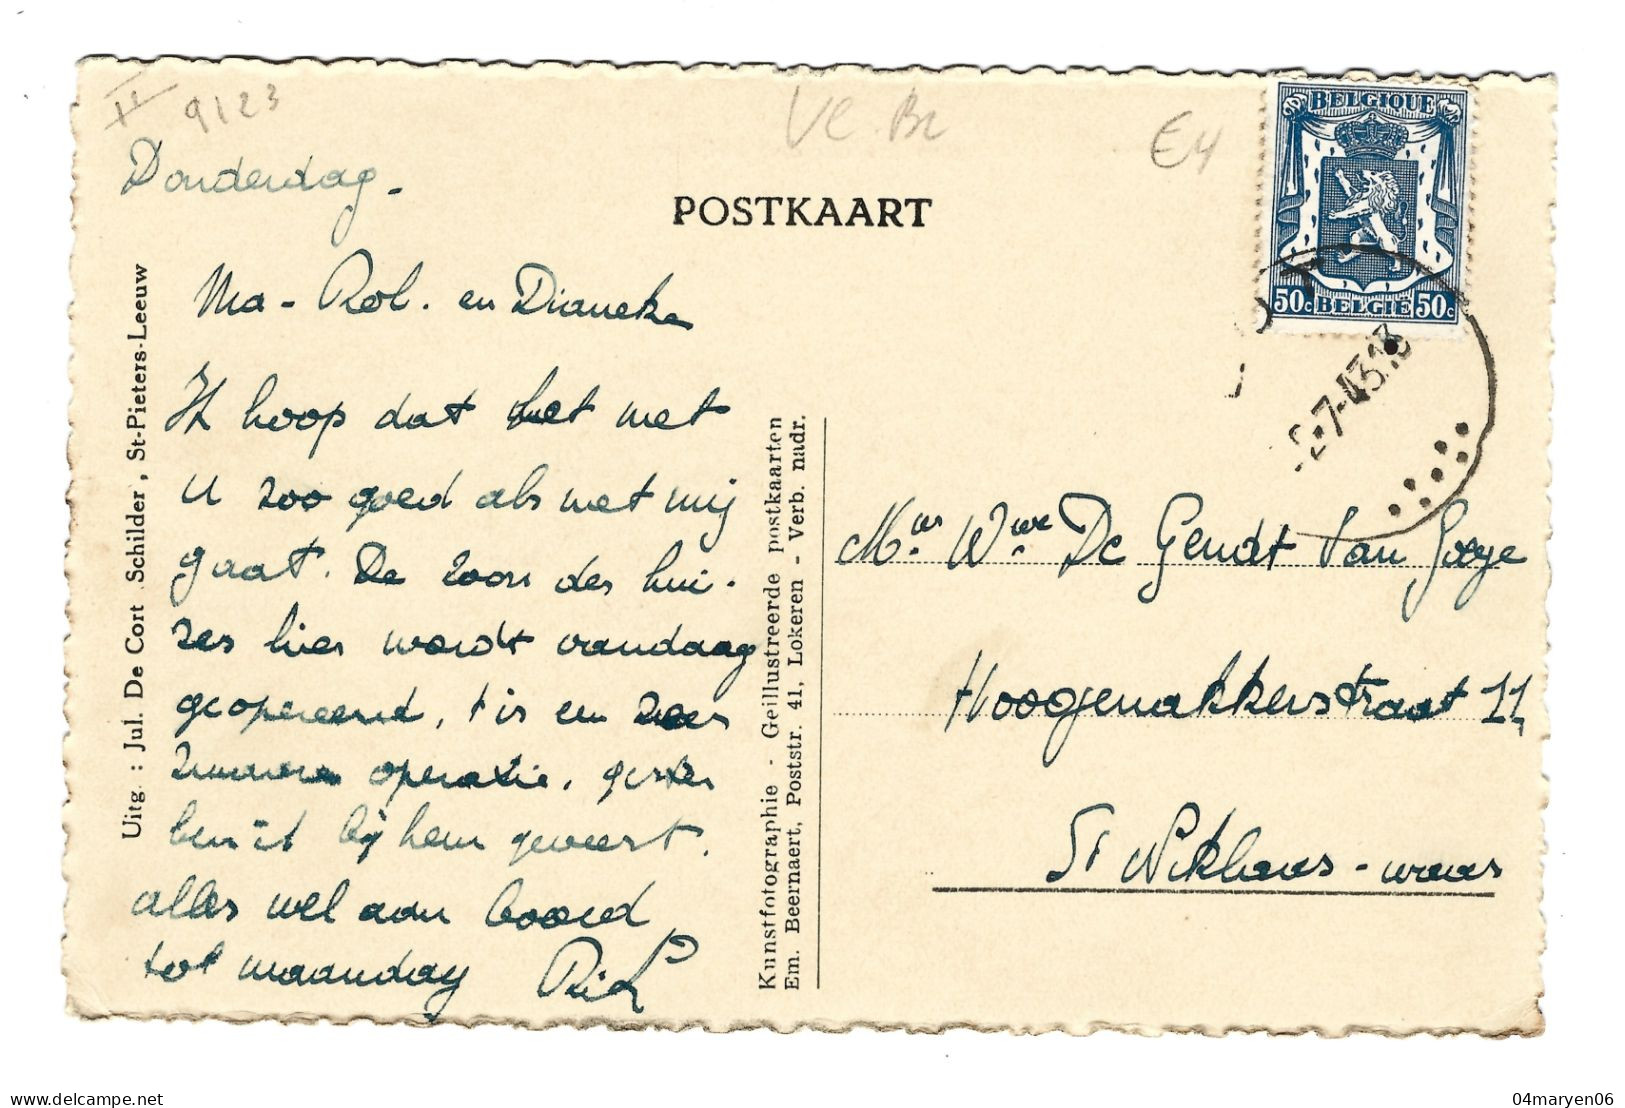 9/23
Vl. Br
€4
BELGIQUE
50c BELGIE 50c
-7-43.18
POSTKAART
Donderdag -
Ma - Rol. en Dianeke
Ik hoop dat het met
U zoo goed als met mij
gaat. De zoon des hui-
zes hier wordt vandaag
geopereerd, t is een zeer
zware operatie, gister
ben ik bij hem geweest.
alles wel aan boord
tot maandag Rik
Uitg. : Jul. De Cort Schilder, St-Pieters-Leeuw
Kunstfotographie - Geillustreerde postkaarten
Em. Beernaert, Poststr. 41, Lokeren - Verb. nadr.
Mw Wwe De Gendt Van Goeye
Hoogenakkerstraat 11
St Niklaas - waas
04maryen06